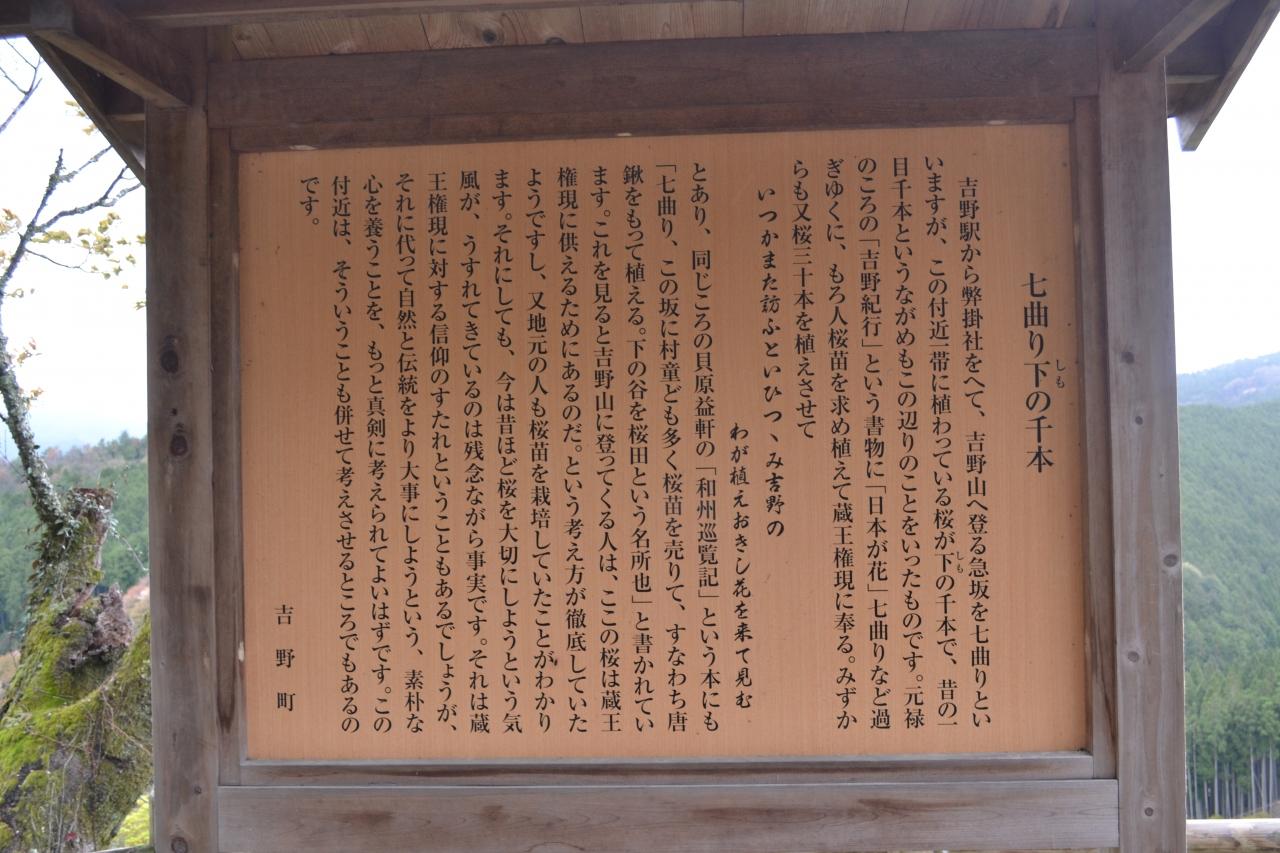 七曲り下の千本
しも
吉野駅から弊掛社をへて、吉野山へ登る急坂を七曲りとい
いますが、この付近一帯に植わっている桜が下の千本で、昔の一
しも
目千本というながめもこの辺りのことをいったものです。元禄
のころの「吉野紀行」という書物に「日本が花」七曲りなど過
ぎゆくに、もろ人桜苗を求め植えて蔵王権現に奉る。みずか
らも又桜三十本を植えさせて
いつかまた訪ふといひつゝみ吉野の
わが植えおきし花を来て見む
とあり、同じころの貝原益軒の「和州巡覧記」という本にも
「七曲り、この坂に村童ども多く桜苗を売りて、すなわち唐
鍬をもって植える。下の谷を桜田という名所也」と書かれてい
ます。これを見ると吉野山に登ってくる人は、ここの桜は蔵王
権現に供えるためにあるのだ。という考え方が徹底していた
ようですし、又地元の人も桜苗を栽培していたことがわかり
ます。それにしても、今は昔ほど桜を大切にしようという気
風が、うすれてきているのは残念ながら事実です。それは蔵
王権現に対する信仰のすたれということもあるでしょうが、
それに代って自然と伝統をより大事にしようという、素朴な
心を養うことを、もっと真剣に考えられてよいはずです。この
付近は、そういうことも併せて考えさせるところでもあるの
です。
吉野町